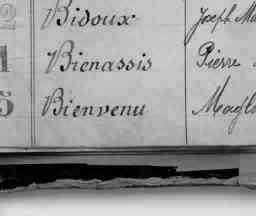 2 Bidoux Joseph
1 Bienassis Pierre
5 Bienvenu